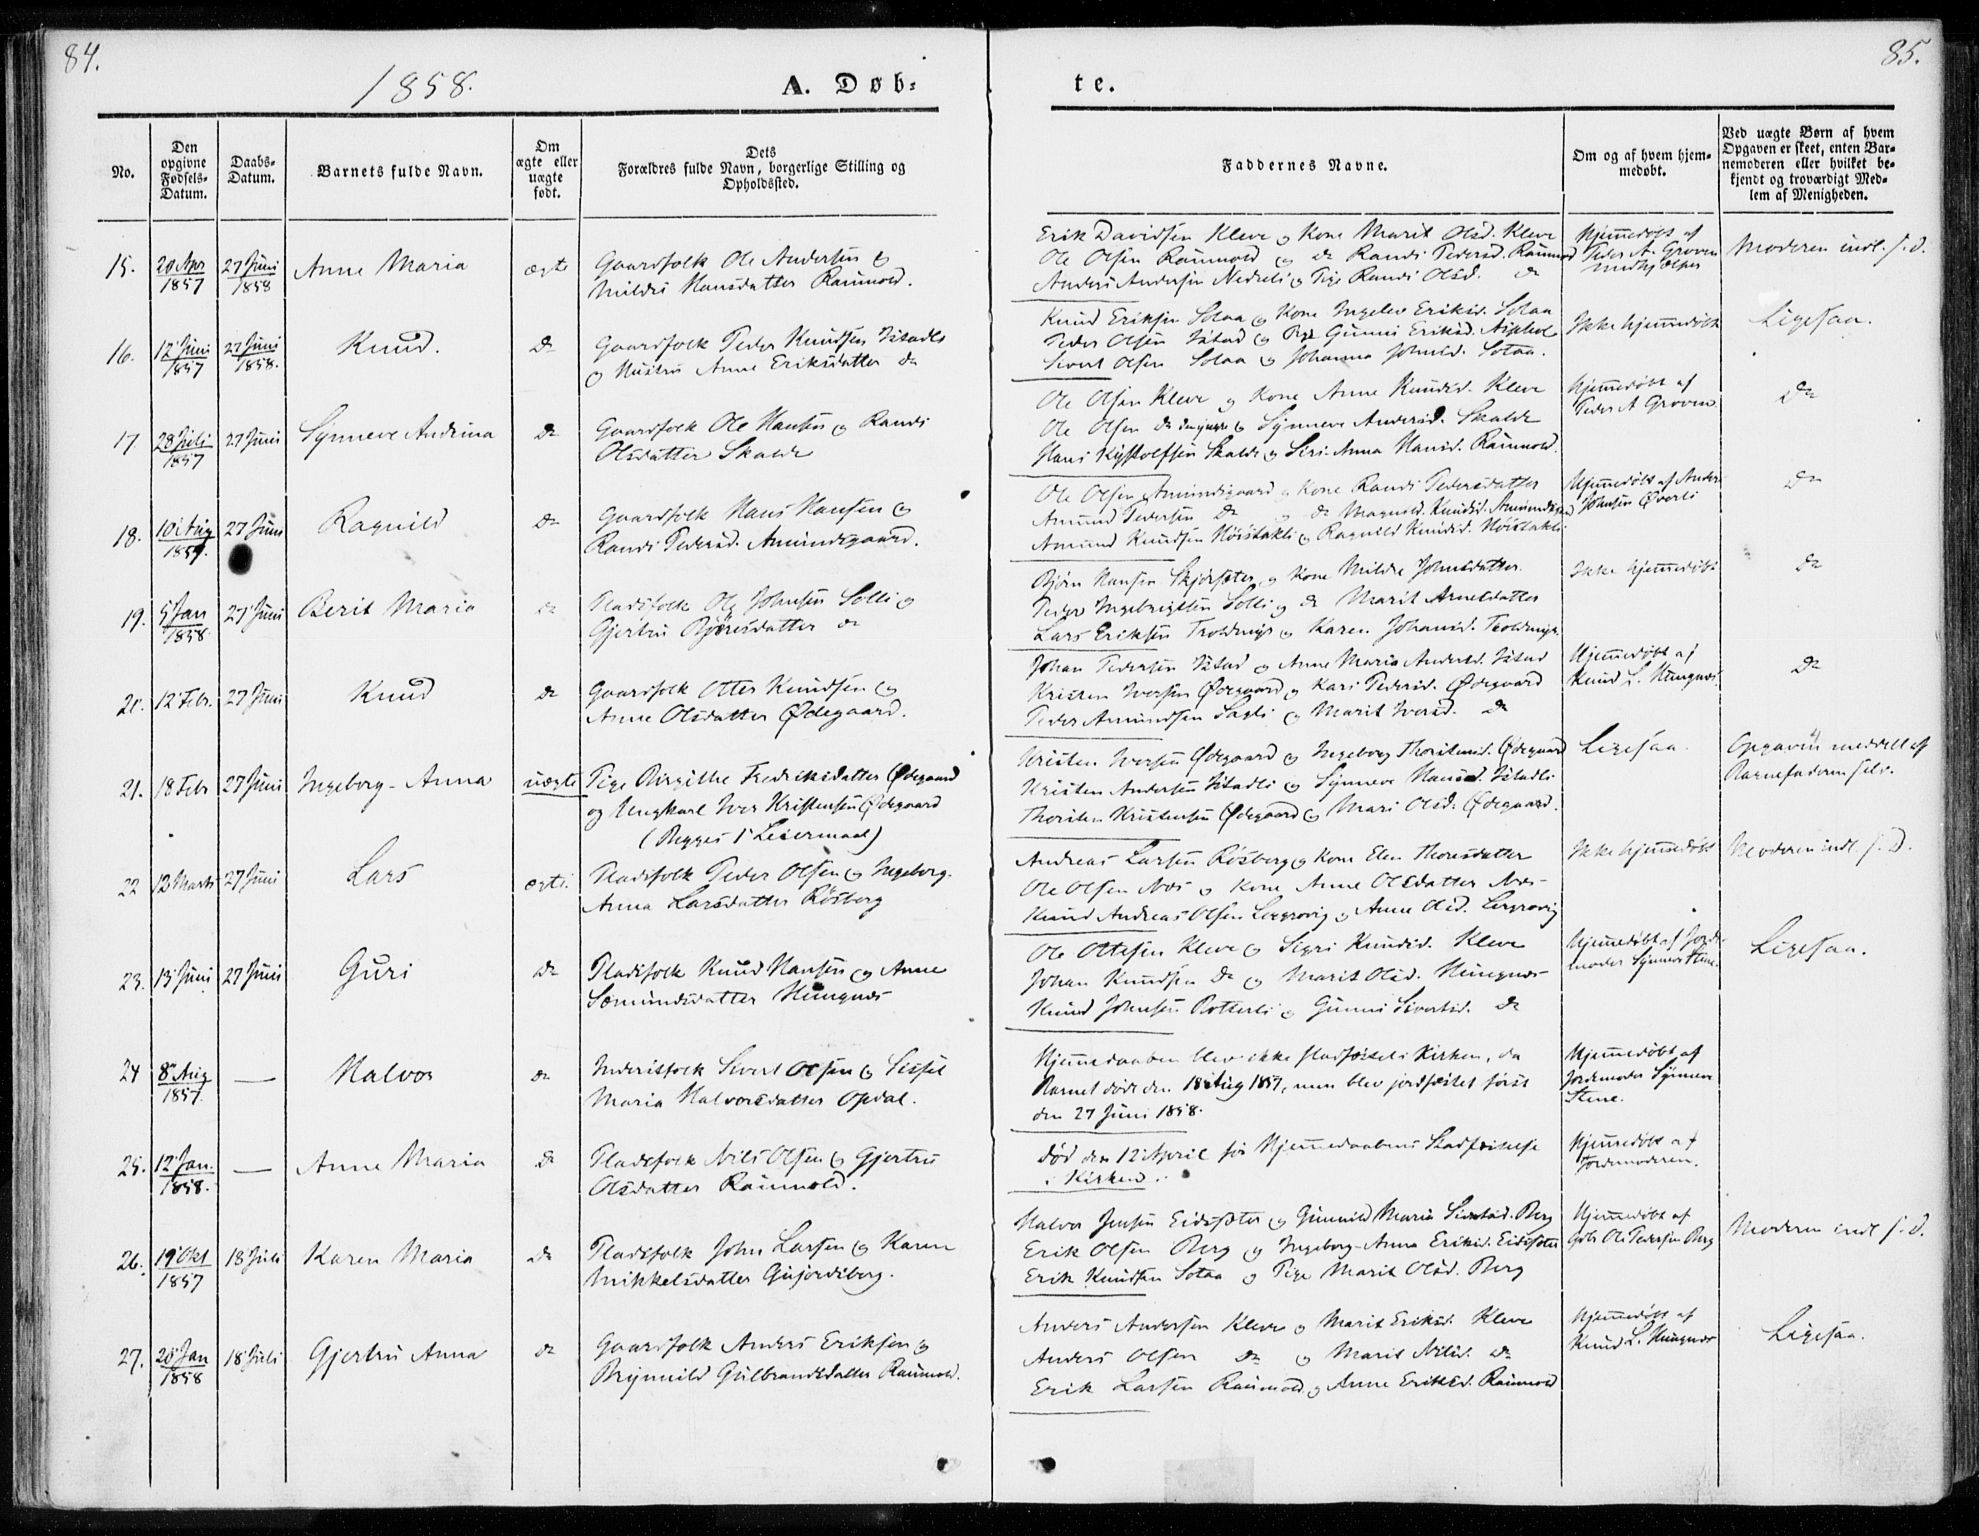 84.
85.
1858.
A. Døb-
te.
No.
Den opgivne Fødsels-Datum.
Daabs-Datum.
Barnets fulde Navn.
Om ægte eller uægte født.
Dets
Forældres fulde Navn, borgerlige Stilling og
Opholdssted.
Faddernes Navne.
Om og af hvem hjem-
medøbt.
Ved uægte Børn af hvem
Opgaven er skeet, enten Bar-
nemoderen eller hvilket be-
kjendt og troværdigt Med-
lem af Menigheden.
15. 20 Apr 1857 27 Juni 1858 Anne Maria ægte
Gaardfolk Ole Andersen og
Mildri Hansdatter Raunvold.
Erik Davidsen Kleve og Kone Marit Olsd. Kleve
Ole Olsen Raunvold og do Randi Pedersd. Raunvold
Anders Andersen Nedreli og Pige Randi Olsd. do
Hjemmedøbt af
Peder A. Groven
Moderen indl. s. d.
16. 12 Juni 1857 27 Juni 1858. Knud. do
Gaardfolk Peder Knudsen Istadli
og Hustru Anne Eriksdatter do
Knud Eriksen Sotaa og Kone Ingelev Eriksd. Sotaa
Peder Olsen Istad og Gunni Eriksd.
Sivert Olsen Sotaa og Johanna Johnsd. Sotaa.
Ikke hjemmedøbt
Ligesaa.
17. 28 Juli 1857 27 Juni Synneve Andrina do
Gaardfolk Ole Hansen og Randi
Olsdatter Skalde
Ole Olsen Kleve og Kone Anne Knudsd. Kleve
Ole Olsen do den yngre og Synneve Andersd. Skalde
Hans Kristofsen Skalde og Siri Anna Hansd. Raunvold.
Hjemmedøbt af
Peder A Groven
do
18. 10 Aug 1857. 27 Juni Ragnild do
Gaardfolk Hans Hansen og
Randi Pedersd. Amundsgaard.
Ole Olsen Amundsgaard og Kone Randi Pedersdatter
Amund Pedersen do og do Magnild Knudsd. Amundsgaard
Amund Knudsen Høistakli og Ragnild Knudsd. Høistakli
Hjemmedøbt af Anders
Johnsen Øverli
do
19. 5 Jan 1858 27 Juni Berit Maria do
Pladsfolk Ole Johnsen Solli og
Gjertru Bjørnsdatter do
Bjørn Hansen Skjørsæter og Kone Mildri Johnsdatter
Peder Ingebrigtsen Solli og do Marit Arnesdatter
Lars Eriksen Troldmyr og Karen Johansd. Troldmyr.
Ikke hjemmedøbt
do
20. 12 Febr. 27 Juni Knud do
Gaardfolk Otter Knudsen og
Anne Olsdatter Ødegaard.
Johan Pedersen Istad og Anne Maria Andersd. Istad
Kristen Iversen Ødegaard og Kari Pedersd. Ødegaard
Peder Amundsen Sagli og Marit Iversd. do
Hjemmedøbt af
Knud L. Hungnæs.
do
21. 18 Febr 27 Juni Ingeborg-Anna uægte
Pige Birgithe Fredriksdatter Ødegaard
og Ungkarl Iver Kristensen Ødegaard
(Begges 1 Leiermaal)
Kristen Iversen Ødegaard og Ingeborg Thorstensd. Ødegaard
Kristen Andersen Istadli og Synneve Hansd. Istadli
Thorsten Kristensen Ødegaard og Mari Olsd. Ødegaard.
Ligesaa.
Opgaven meddelt af
Barnefaderen selv.
22 12 Marts 27 Juni Lars ægte.
Pladsfolk Peder Olsen og Ingeborg-
Anna Larsdatter Røsberg
Andreas Larsen Røsberg og Kone Elen Thoresdatter
Ole Olsen Næs og Kone Anne Olsdatter Næs
Knud Andreas Olsen Lergrovig og Anne Olsd. Lergrovig
Ikke hjemmedøbt
Moderen indl. s. D.
23. 13 Juni 27 Juni Guri do
Pladsfolk Knud Hansen og Anne
Sæmundsdatter Hungnæs
Ole Ottesen Kleve og Sigri Knudsd. Kleve
Johan Knudsen do og Marit Olsd. Hungnæs
Knud Johnsen Rotterli og Gunni Sivertsd. do
Hjemmedøbt af Jorde-
moder Synneve Stene.
Ligesaa.
24 8 Aug 1857. — Halvor do
Inderstfolk Sivert Olsen og Sissel
Maria Halvorsdatter Opdal.
Hjemmedaaben blev ikke stadfæstet i Kirken, da
Barnet døde den 18 Aug 1857, men blev jordfæstet først
den 27 Juni 1858.
Hjemmedøbt af
Jordemoder Synneve
Stene.
25. 12 Jan. 1858. — Anne Maria do
Pladsfolk Nils Olsen og Gjertru
Olsdatter Raunvold.
Død den 12 April før Hjemmedaabens Stadfæstelse
i Kirken.
Hjemmedøbt af
Jordemoderen.
26. 19 Okt 1857 18 Juli Karen Maria do
Pladsfolk John Larsen og Karen
Mikkelsdatter Gujordsberg.
Halvor Jensen Eidsæter og Gunnild Maria Sivertsd. Berg
Erik Olsen Berg og Ingeborg-Anna Eriksd. Eidsæter
Erik Knudsen Sotaa og Pige Marit Olsd. Berg
Hjemmedøbt af
Gbr. Ole Pedersen Berg
Moderen indl. s. d.
27. 20 Jan 1858 18 Juli Gjertru Anna do
Gaardfolk Anders Eriksen og
Brynnild Gulbrandsdatter Raunvold.
Anders Andersen Kleve og Marit Eriksd. Kleve
Anders Olsen do og Marit Nilsd. do
Erik Larsen Raunvold og Anne Eriksd. Raunvold
Hjemmedøbt af
Knud L. Hungnæs
Ligesaa.